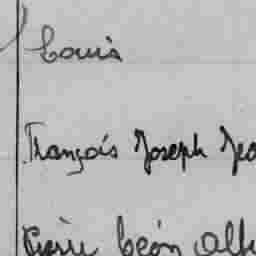 Louis
François Joseph Jea
Pierre Léon Alf